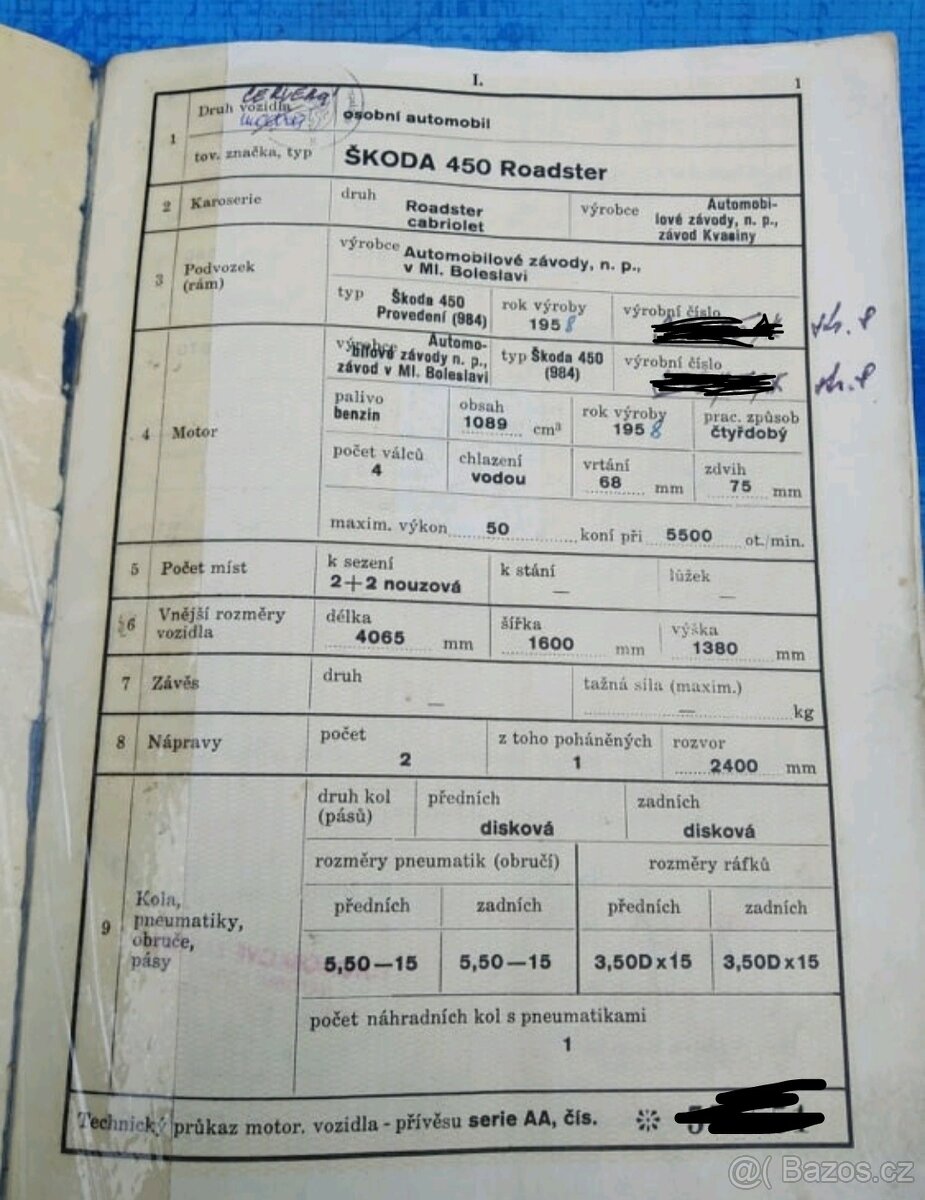 I. 1
1 Druh vozidla osobní automobil
tov. značka, typ ŠKODA 450 Roadster
2 Karoserie druh Roadster cabriolet výrobce Automobi-
lové závody, n. p.,
závod Kvasiny
3 Podvozek (rám) výrobce Automobilové závody, n. p.,
v Ml. Boleslavi
typ Škoda 450
Provedení (984) rok výroby 1958 výrobní číslo str. 8
4 Motor výrobce Automo-
bilové závody n. p.,
závod v Ml. Boleslavi typ Škoda 450
(984) výrobní číslo str. 8
palivo benzin obsah 1089 cm³ rok výroby 1958 prac. způsob čtyřdobý
počet válců 4 chlazení vodou vrtání 68 mm zdvih 75 mm
maxim. výkon 50 koní při 5500 ot./min.
5 Počet míst k sezení 2+2 nouzová k stání — lůžek —
6 Vnější rozměry
vozidla délka 4065 mm šířka 1600 mm výška 1380 mm
7 Závěs druh — tažná síla (maxim.) — kg
8 Nápravy počet 2 z toho poháněných 1 rozvor 2400 mm
9 Kola,
pneumatiky,
obruče,
pásy
druh kol
(pásů) předních disková zadních disková
rozměry pneumatik (obručí) rozměry ráfků
předních zadních předních zadních
5,50—15 5,50—15 3,50D x 15 3,50D x 15
počet náhradních kol s pneumatikami
1
Technický průkaz motor. vozidla - přívěsu serie AA, čís.
@( Bazos.cz